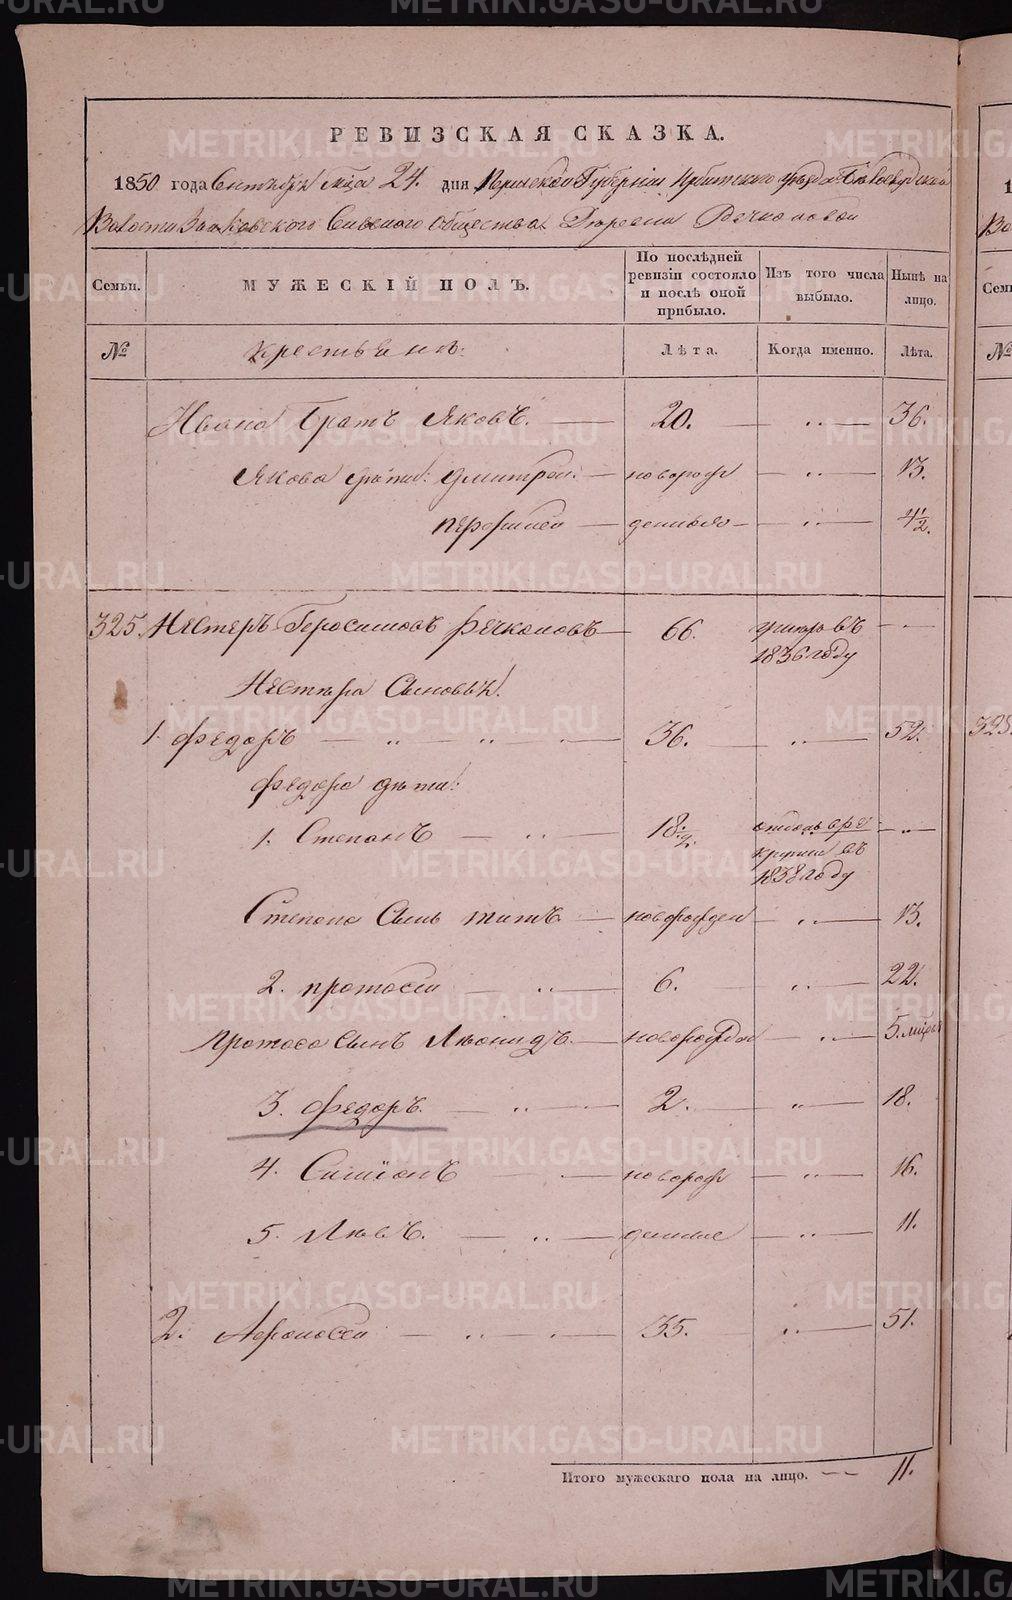 РЕВИЗСКАЯ СКАЗКА.
1850 года Сентября м̃ца 24. дня Пермской Губерніи Ирбитскаго уѣзда Бѣлослудской
Волости Зайковского Сельского общества Деревни Речкаловой
Семьи.
МУЖЕСКІЙ ПОЛЪ.
По послѣдней ревизіи состояло и послѣ оной прибыло.
Изъ того числа выбыло.
Нынѣ на лицо.
№
крестьянъ:
Лѣта.
Когда именно.
Лѣта.
Ивана Братъ Яковъ. — 20. — „ — 36.
Якова дѣти: Дмитрей — новорож — „ — 13.
перфилей — денные — „ — 4½.
325. Нестеръ Геросимовъ Речкаловъ — 66. умеръ въ 1836 году — „ —
Нестера Сыновья:
1. Федоръ — „ — „ — 36. — „ — 52.
Федора дѣти:
1. Степанъ — „ — 18½. отданъ в рекруты въ 1838 году — „ —
Степана Сынъ титъ — новорожден — „ — 13.
2. протасей — „ — 6. — „ — 22.
Протаса Сынъ Леонидъ — новорожден — „ — 5. мѣся
3. Федоръ. — „ — 2. — „ — 18.
4. Симіонъ — новорож — „ — 16.
5. Левъ. — „ — денные — „ — 11.
2. Афонасей — „ — 35. — „ — 51.
Итого мужескаго пола на лицо. — — 11.
325
METRIKI.GASO-URAL.RU